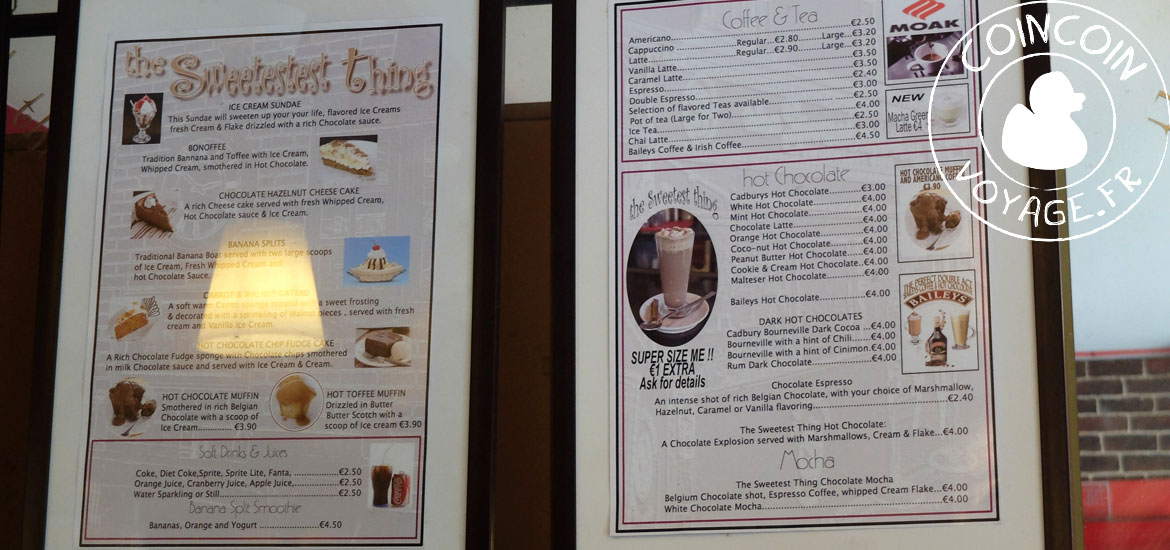 the Sweetestest thing
ICE CREAM SUNDAE
This Sundae will sweeten up your your life, flavored Ice Creams
fresh Cream & Flake drizzled with a rich Chocolate sauce.
BONOFFEE
Tradition Bannana and Toffee with Ice Cream,
Whipped Cream, smothered in Hot Chocolate.
CHOCOLATE HAZELNUT CHEESE CAKE
A rich Cheese cake served with fresh Whipped Cream,
Hot Chocolate sauce & Ice Cream.
BANANA SPLITS
Traditional Banana Boat served with two large scoops
of Ice Cream, Fresh Whipped Cream and
hot Chocolate Sauce.
CARROT & WALNUT GATEAU
A soft warm Carrot sponge topped with a sweet frosting
& decorated with a sprinkling of Walnut pieces , served with fresh
cream and Vanilla Ice Cream.
HOT CHOCOLATE CHIP FUDGE CAKE
A Rich Chocolate Fudge sponge with Chocolate chips smothered
in milk Chocolate sauce and served with Ice Cream & Cream.
HOT CHOCOLATE MUFFIN
Smothered in rich Belgian
Chocolate with a scoop of
Ice Cream.............. €3.90
HOT TOFFEE MUFFIN
Drizzled in Butter
Butter Scotch with a
scoop of Ice cream €3.90
Soft Drinks & Juices
Coke, Diet Coke,Sprite, Sprite Lite, Fanta, ..................€2.50
Orange Juice, Cranberry Juice, Apple Juice,..................€2.50
Water Sparkling or Still................................................€2.50
Banana Split Smoothie
Bananas, Orange and Yogurt ........................€4.50
Coffee & Tea
Americano..............................................................€2.50
Cappuccino ....................Regular...€2.80.........Large...€3.20
Latte..............................Regular...€2.90.........Large...€3.20
Vanilla Latte............................................................€3.50
Caramel Latte..........................................................€3.50
Espresso..................................................................€2.40
Double Espresso.......................................................€3.00
Selection of flavored Teas available............................€2.50
Pot of tea (Large for Two)..........................................€4.00
Ice Tea....................................................................€2.50
Chai Latte................................................................€3.00
Baileys Coffee & Irish Coffee......................................€4.50
MOAK
NEW
Macha Green
Latte €4
hot Chocolate
the Sweetest thing
Cadburys Hot Chocolate..............€3.00
White Hot Chocolate...................€4.00
Mint Hot Chocolate.....................€4.00
Chocolate Latte..........................€4.00
Orange Hot Chocolate.................€4.00
Coco-nut Hot Chocolate..............€4.00
Peanut Butter Hot Chocolate........€4.00
Cookie & Cream Hot Chocolate..€4.00
Malteser Hot Chocolate...............€4.00
Baileys Hot Chocolate..................€4.00
DARK HOT CHOCOLATES
Cadbury Bourneville Dark Cocoa ...€4.00
Bourneville with a hint of Chili.......€4.00
Bourneville with a hint of Cinimon.€4.00
Rum Dark Chocolate.....................€4.00
SUPER SIZE ME !!
€1 EXTRA
Ask for details
HOT CHOCOLATE MUFFIN
AND AMERICANO COFFEE
€3.90
THE PERFECT DOUBLE ACT
BAILEYS COFFEE & HOT CHOCOLATE
BAILEYS
Chocolate Espresso
An intense shot of rich Belgian Chocolate, with your choice of Marshmallow,
Hazelnut, Caramel or Vanilla flavoring.............................................€2.40
The Sweetest Thing Hot Chocolate:
A Chocolate Explosion served with Marshmallows, Cream & Flake...€4.00
Mocha
The Sweetest Thing Chocolate Mocha
Belgium Chocolate shot, Espresso Coffee, whipped Cream Flake...€4.00
White Chocolate Mocha............................................................€4.00
COINCOIN
VOYAGE.FR